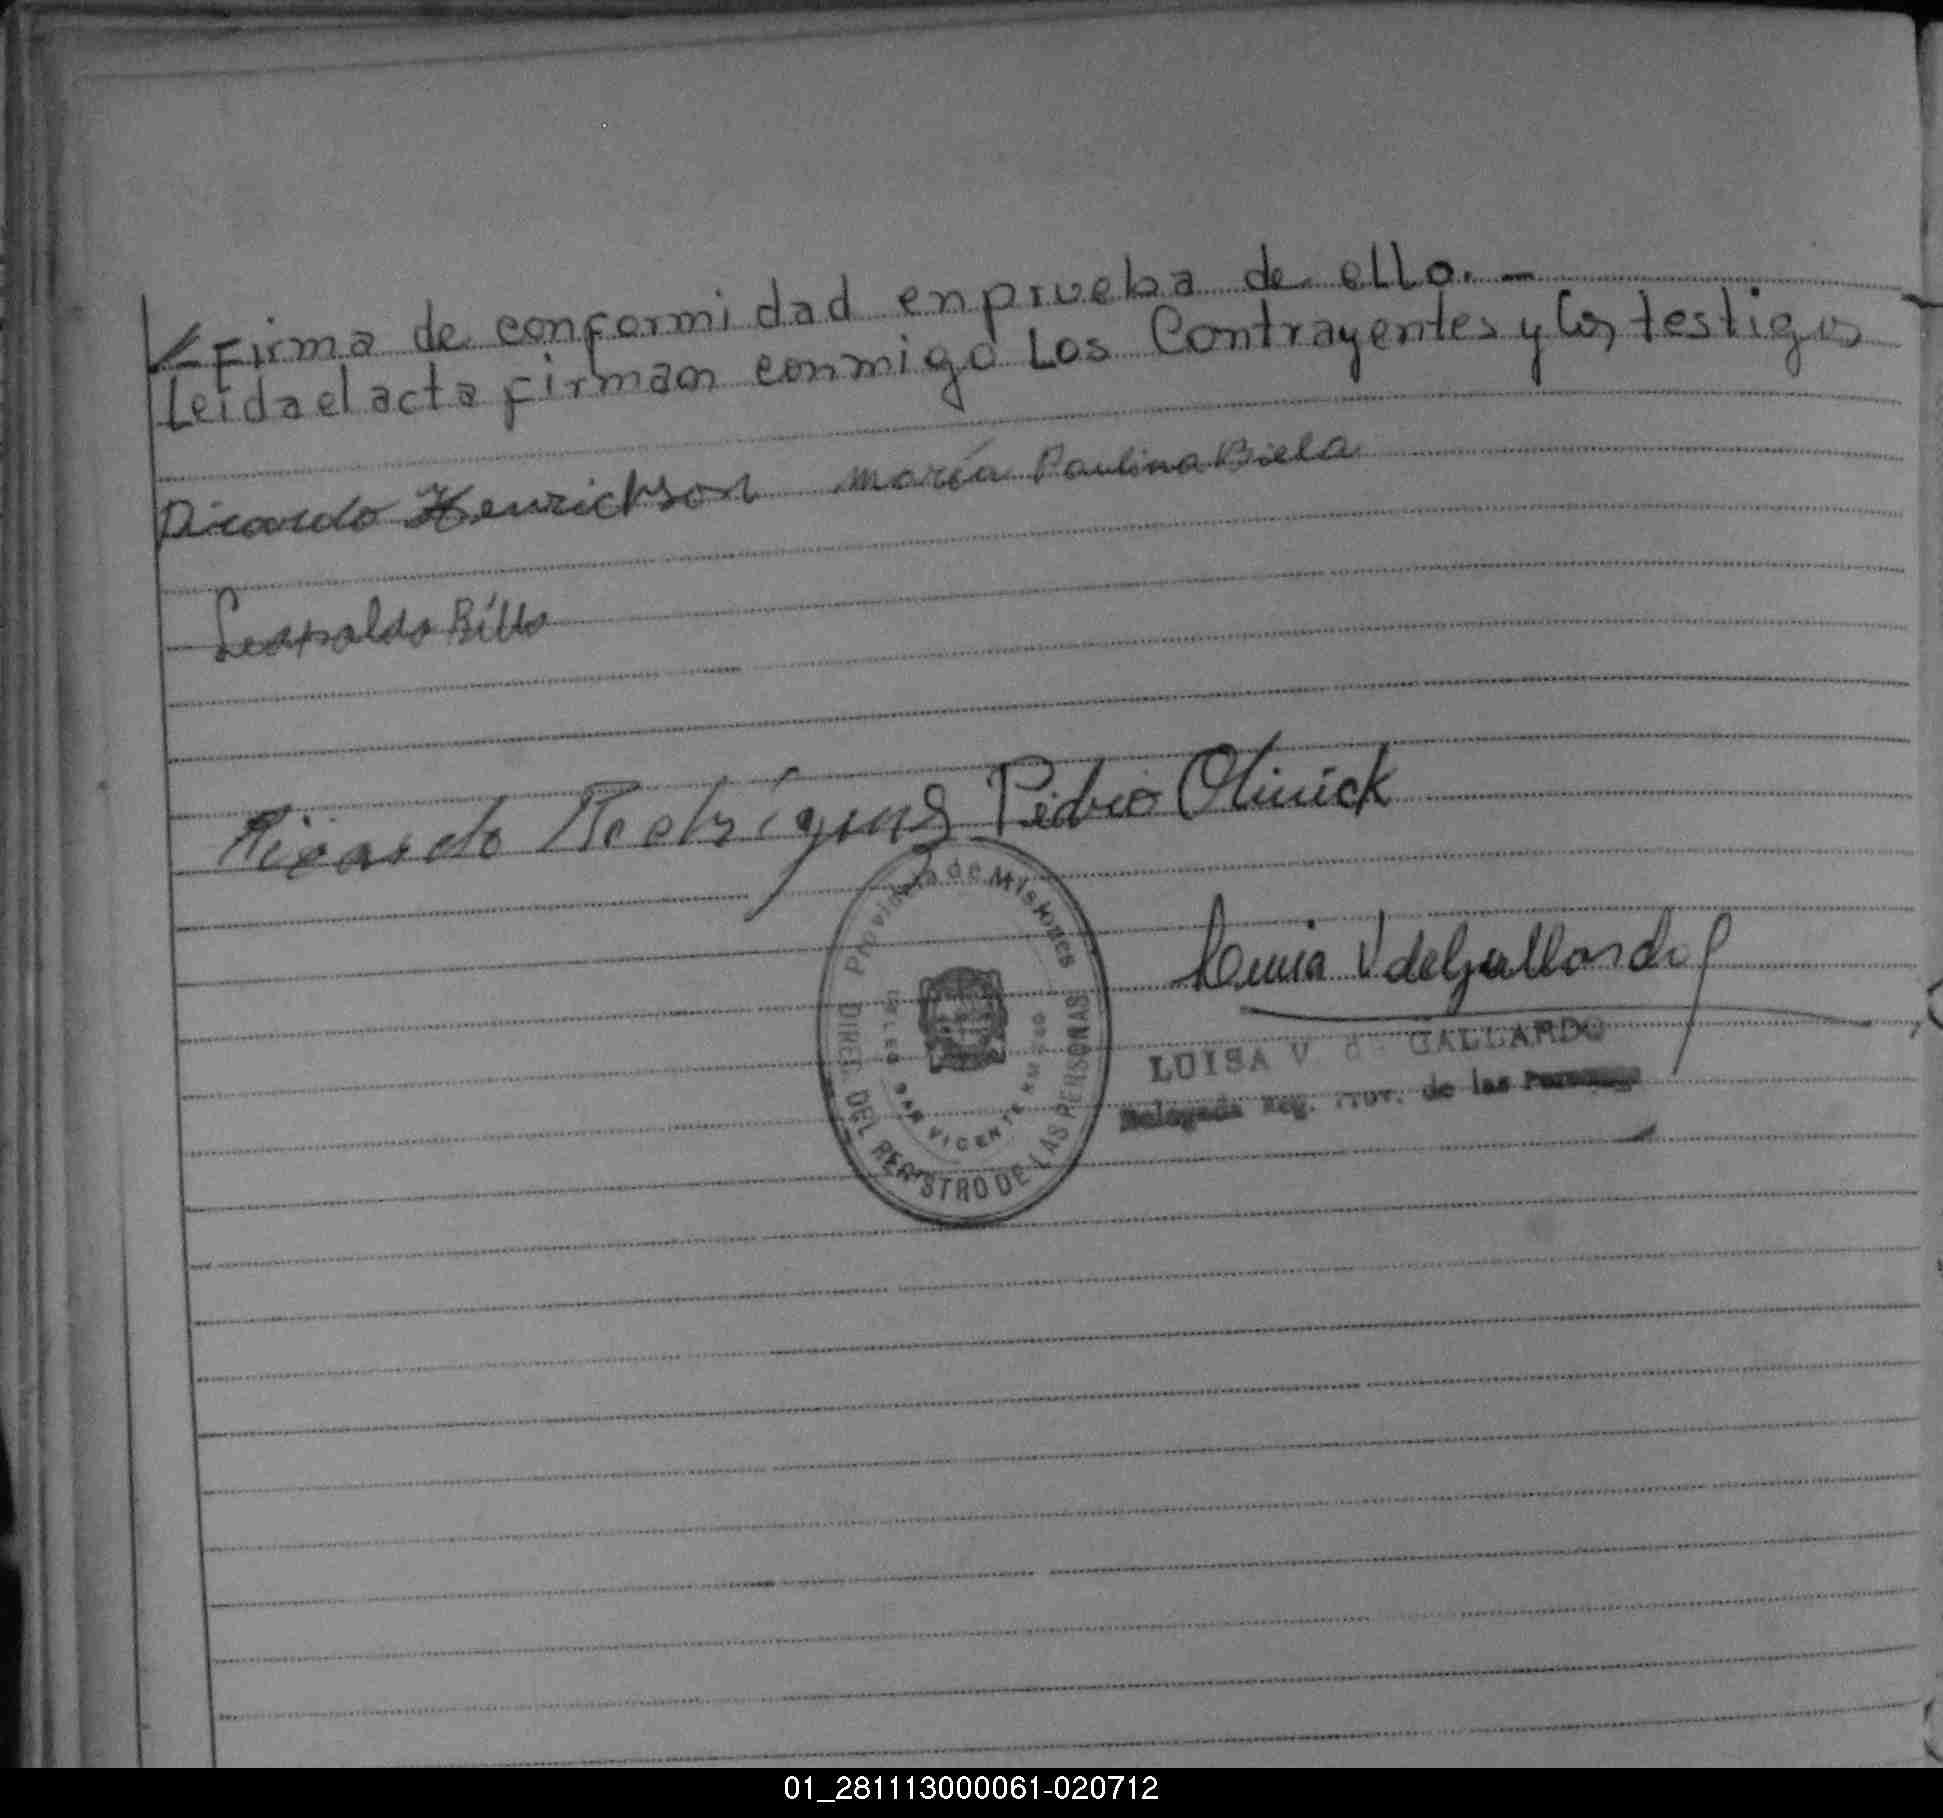 Firma de conformidad en prueba de ello. -
Leida el acta firman conmigo Los Contrayentes y los testigos
Ricardo Henrickson María Paulina Biela
Leopoldo
Ricardo Rodríguez Pedro Olinick
Provincia de Misiones
DIREC. DEL REGISTRO DE LAS PERSONAS
SAN VICENTE
Luisa V de Gallardo
LUISA V. de GALLARDO
Delegada Reg. Prov. de las Personas
01_281113000061-020712